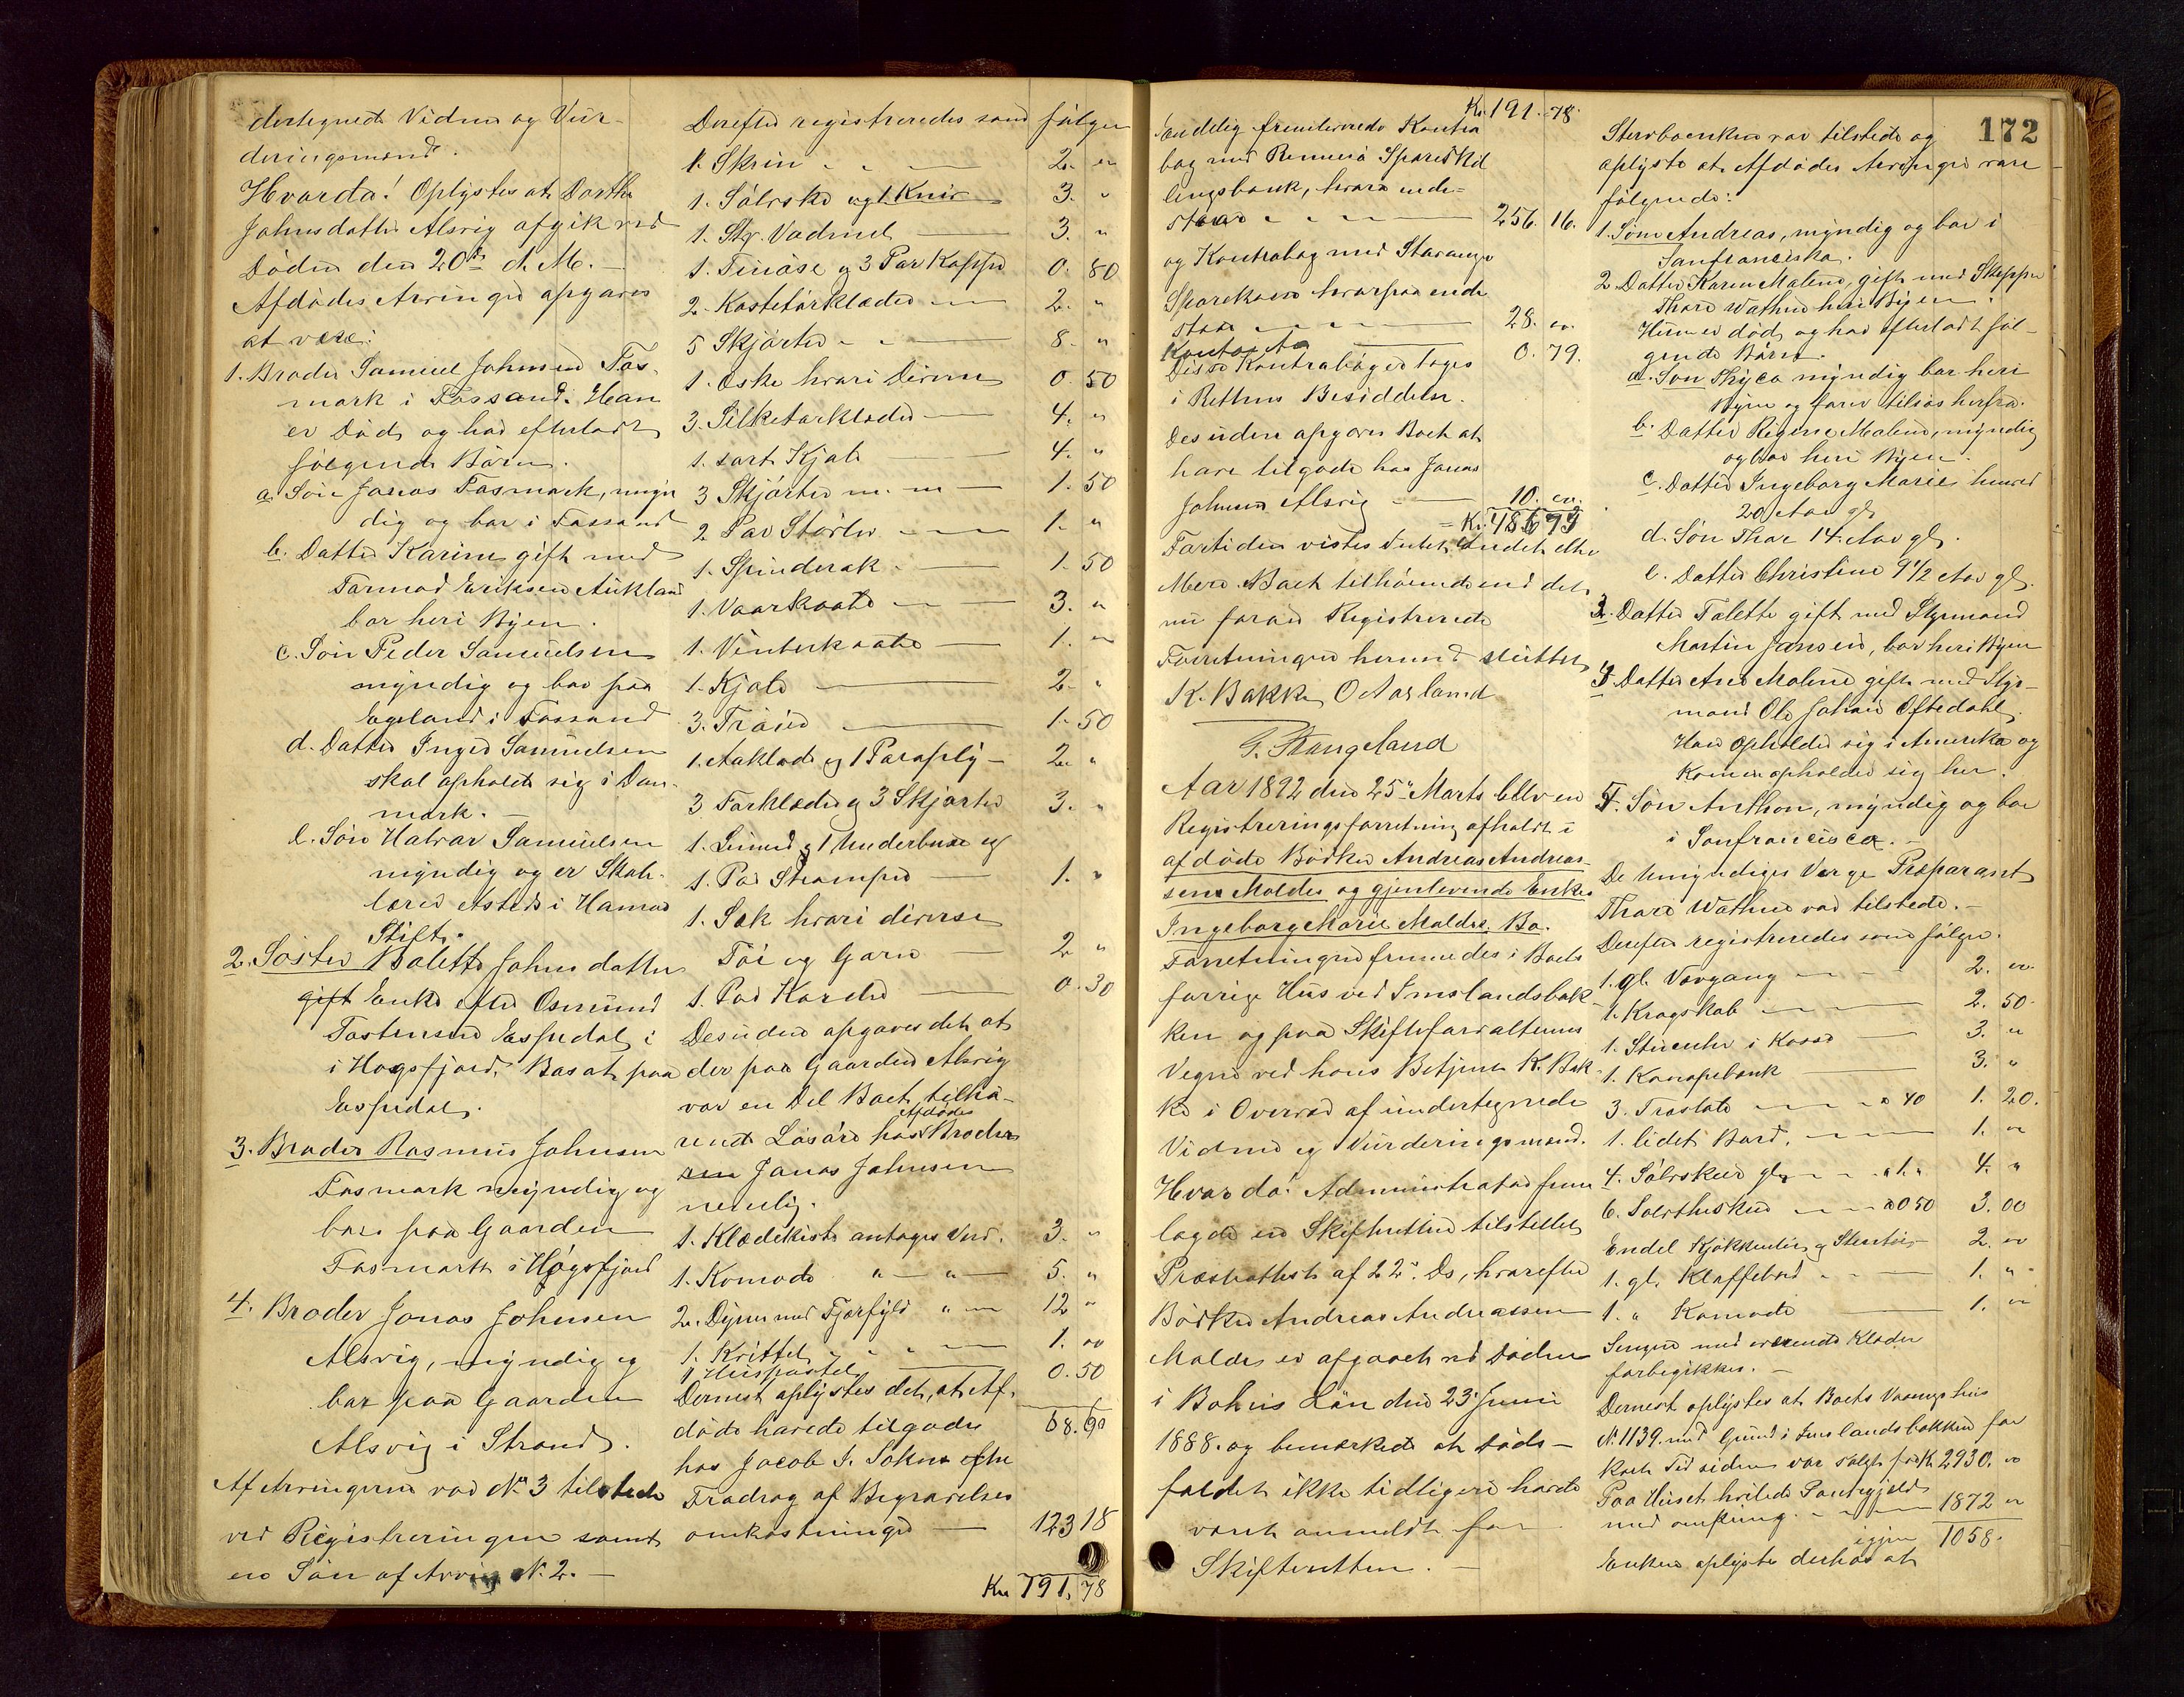 dertegnede Vidner og Vur-
deringsmænd.
Hvorda! Oplystes at Dorthe
Johnsdatter Alsvig afgik ved
Døden den 20de d. M. –
Afdødes Arvinger opgaves
at være:
1. Broder Samuel Johnsen Fos-
mark i Fossand. Han
er Død, og har efterladt
følgende Børn.
a. Søn Jonas Fosmark, myn
dig og bor i Fossand
b. Datter Karine gift med
Tormod Eriksen Aukland
bor heri Byen.
c. Søn Peder Samuelsen
myndig og bor paa
Egeland i Fossand
d. Datter Inger Samuelsen
skal opholde sig i Dan-
mark. –
e. Søn Halvar Samuelsen
myndig og er Skol-
lærer Asteds i Hamar
Stift.
2. Søster Bolette Johnsdatter
gift Enke efter Osmund
Tostensen Espedal i
i Høgsfjord, Bosat paa
Espedal.
3. Broder Rasmus Johnsen
Fosmark myndig og
bor paa Gaarden
Fosmark i Høgsfjord
4. Broder Jonas Johnsen
Alsvig, myndig og
bor paa Gaarden
Alsvig i Strand.
Af Arvingerne var No 3 tilstede
ved Registreringen samt
en Søn af Arving No. 2. –
Derefter registreredes som følger
1. Skrin 2. "
1. Sølvske og 1 Kniv 3. "
1. Sty. Vadmel 3. "
1. Tinøse og 3 Par Kopper 0. 80
2. Kastetørklæder 2. "
5 Skjørter 8. "
1. Æske hvori Diverse 0. 50
3. Silketørklæder 4. "
1. sort Kjole 4. "
3 Skjørter m. m 1. 50
2 Par Støvler 1. "
1. Spinderok 1. 50
1. Vaarkaabe 3. "
1. Vinterkaabe 1. "
1. Kjole 2. "
3. Trøier 1. 50
1. Aaklæde og 1 Paraply 2. "
3 Forklæder og 3 Skjorter 3. "
1. Linned og 1 Underbuxe og
1. Par Strømper 1. "
1. Sæk hvori diverse
Tøi og Garn 2 "
1. Par Karder 0. 30
Desuden opgaves det at
der paa Gaarden Alsvig
var en Del Boet tilhø-
Afdødes
rende Løsøre hos Broder
Jonas Johnsen
nemlig.
1. Klædekiste antages Verd. 3. "
1. Komode " – " 5. "
2. Dyner med Fjærfyld " 12 "
1. Krittel 1. "
1 Huspostel 0. 50
Dernest oplystes det, at Af-
døde havde tilgode 68. 60
hos Jacob S. Sokn efter
Fradrag af Begravelses
omkostninger 123 18
Kr 191. 78
172
Kr. 191. 78.
Endelig fremlevede Kontra
bog med Rennesø Sparesk
lingsbank, hvora inde-
staar 256. 16.
og Kontrabog med Stavanger
Sparekasse hvorpaa inde
staar 28. "
0. 79.
Disse Kontrabøger toges
i Rettens Besiddelse.
Desuden opgaves Boet at
have tilgode hos Jonas
Johnsen Alsvig 10. "
= Kr. 486 73
Fortiden vistes Intet Andet eller
Mere Boet tilhørende end det
nu foran Registrerede
Forretningen hermed sluttet
K. Bakke O Aasland
T. Stangeland
Aar 1892 den 25de Marts blev en
Registreringsforretning afholdt i
afdøde Bødker Andreas Andreas-
sens Moldes og gjenlevende Enke
Ingeborg Marie Moldes. Bo.
Forretningen fremmedes i Boets
forrige Hus ved Imslandsbak-
ken og paa Skifteforvalterens
Vegne ved hans Betjent K. Bak-
ke i Overvær af undertegnede
Vidner og Vurderingsmænd.
Hvorda! Administrator frem
lagde en Skifteretten tilstillet
Præsteattest af 22de Ds, hvorefter
Bødker Andreas Andreassen
Moldes er afgaaet ved Døden
i Bohus Län den 23de Juni
1888. og bemærkede at Døds-
faldet ikke tidligere havde
været anmeldt for
Skifteretten. –
Stervboenken var tilstede og
oplyste at Afdødes Arvinger vare
følgende:
1. Søn Andreas, myndig og bor i
Sanfranciska.
2. Datter Karen Malene, gift med Skipper
Thore Wathne heri Byen.
Hun er død, og har efterladt føl-
gende Børn.
a. Søn Thyco myndig bor heri
Byen og farer tilsøs herfra.
b. Datter Regine Malene, myndig
og bor heri Byen.
c. Datter Ingeborg Marie henved
20 Aar gl
d. Søn Thor 14. Aar gl.
e. Datter Christine 9 1/2 Aar gl.
3. Datter Tolette gift med Styrmand
Martin Jansen, bor heri Byen
4. Datter Ane Malene gift med Styr-
mand Ole Johan Oftedahl.
Han opholder sig i Amerika og
Konen opholder sig her.
5. Søn Anthon, myndig og bor
i Sanfrancisca. –
De Umyndiges Verge Præparant
Thore Wathne var tilstede. –
Derefter registreredes som følger.
1. gl. Vævgang 2. "
1. Krogskab 2. 50.
1. Stueuhr i Kasse 3. "
1. Kanapebænk 3. "
3. Træstole a 40 1. 20.
1. lidet Bord. 1. "
4. Sølvskeer gl. a 1. " 4. "
6. Sølvtheskeer a 0 50 3. 00
Endel Kjøkkentøi og Stentøi 2. "
1. gl. Klaffebord 1. "
1. " Komode 1. "
Sengen med værende Klæder
forbigikkes. –
Dernest oplystes at Boets Vaaningshus
No. 1139. med Grund i Imslandsbakken for
kort Tid siden var solgt for Kr. 2930. "
Paa Huset hvilede Pantegjeld
med omkring 1872 "
igjen 1058.
Enken oplyste derhos at